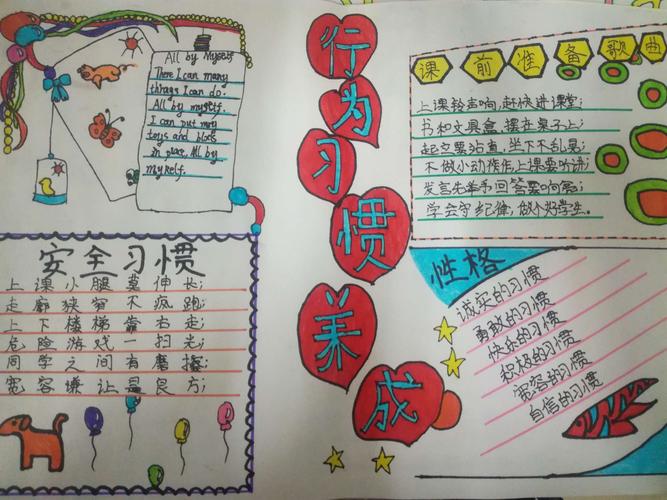 All by Myself
There I can many
things I can do.
All by myself.
I can put my
toys and blocks
in place. All by
myself.
安全习惯
上课小腿莫伸长;
走廊狭窄不疯跑;
上下楼梯靠右走;
危险游戏一扫光;
同学之间有磨擦;
宽容嫌让是良方;
行为习惯养成
课前准备歌曲
上课铃声响,赶快进课堂;
书和文具盒,摆在桌子上;
起立要站直,坐下不乱晃;
不做小动作,上课要听讲;
发言先举手回答要响亮;
学会守纪律,做个好学生.
性格
诚实的习惯
勇敢的习惯
快乐的习惯
积极的习惯
宽容的习惯
自信的习惯